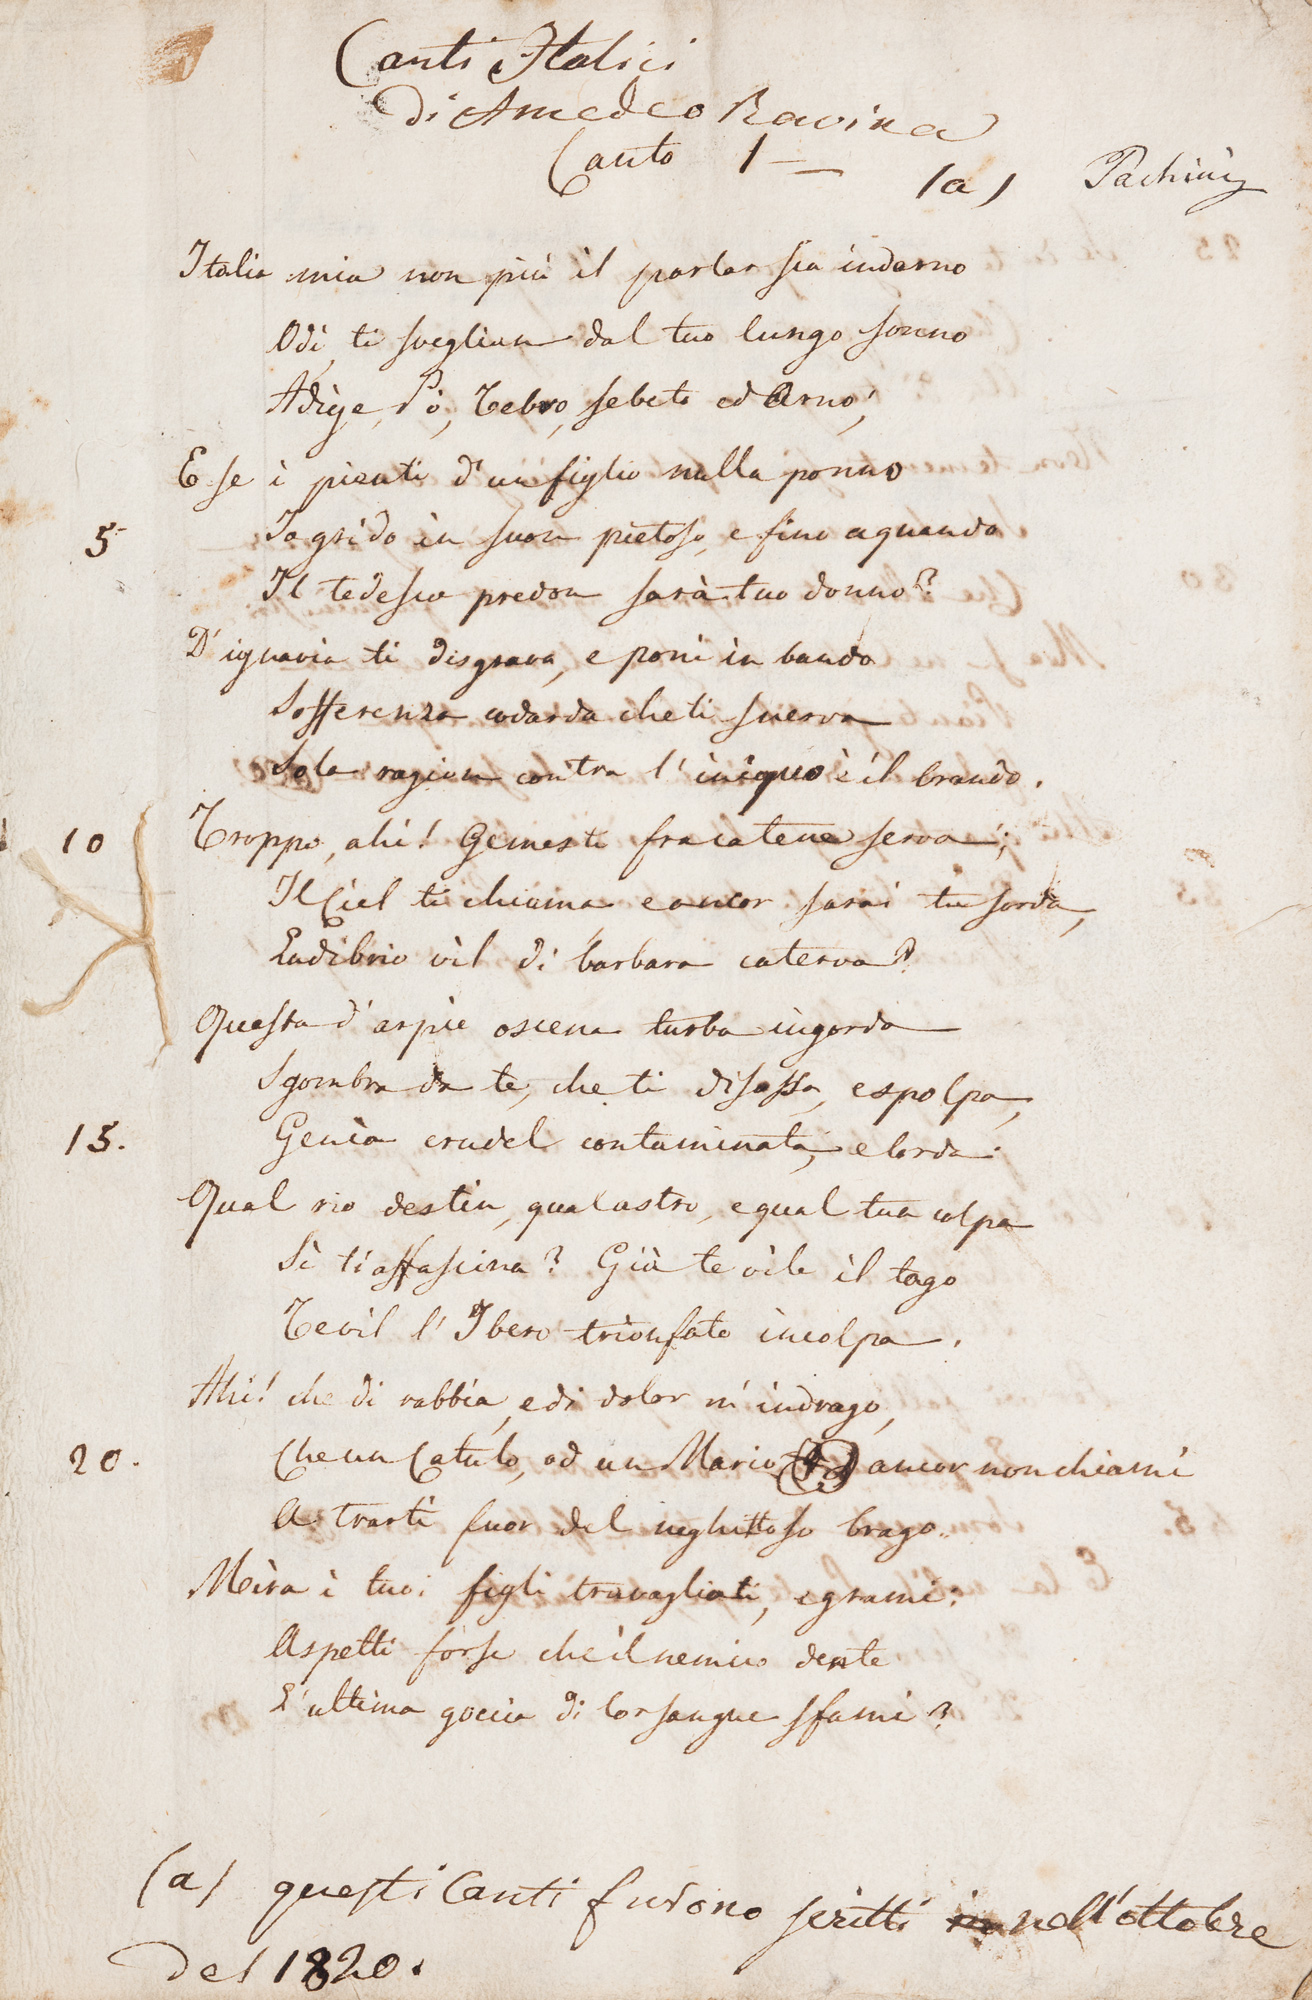 Canti Italici
di Amedeo Ravina
Canto 1
(a) Pachini
Italia mia non più il parlar sia indarno
Odi, ti sveglian dal tuo lungo sonno
Adige, Pò, Tebro, sebeto ed Arno;
E se i pianti d'un figlio nulla ponno
5 Io grido in suon pietoso, e fino a quando
Il tedesco predon sarà tuo donno?
D'ignavia ti disgrava, e poni in bando
Sofferenza codarda che ti snerva
Sola ragion contra l'iniquo è il brando.
10 Troppo, ahi! Gemesti fra catene serva;
Il Ciel ti chiama e ancor sarai tu sorda,
Ludibrio vil di barbara caterva?
Questa d'arpie oscena turba ingorda
Sgombra da te, che ti disossa, e spolpa,
15. Genìa crudel contaminata, e lorda.
Qual rio destin, qual astro, e qual tua colpa
Sì ti affascina? Già te vile il tago
Te vil l'Ibero trionfato incolpa.
Ahi! che di rabbia, e di dolor m'indrago,
20. Che un Catulo, od un Mario ancor non chiami
A trarti fuor del neghittoso brago.
Mira i tuoi figli travagliati, e grami:
Aspetti forse che il nemico dente
L'ultima goccia di lor sangue sfami?
(a) questi Canti furono scritti nell'ottobre
del 1820.